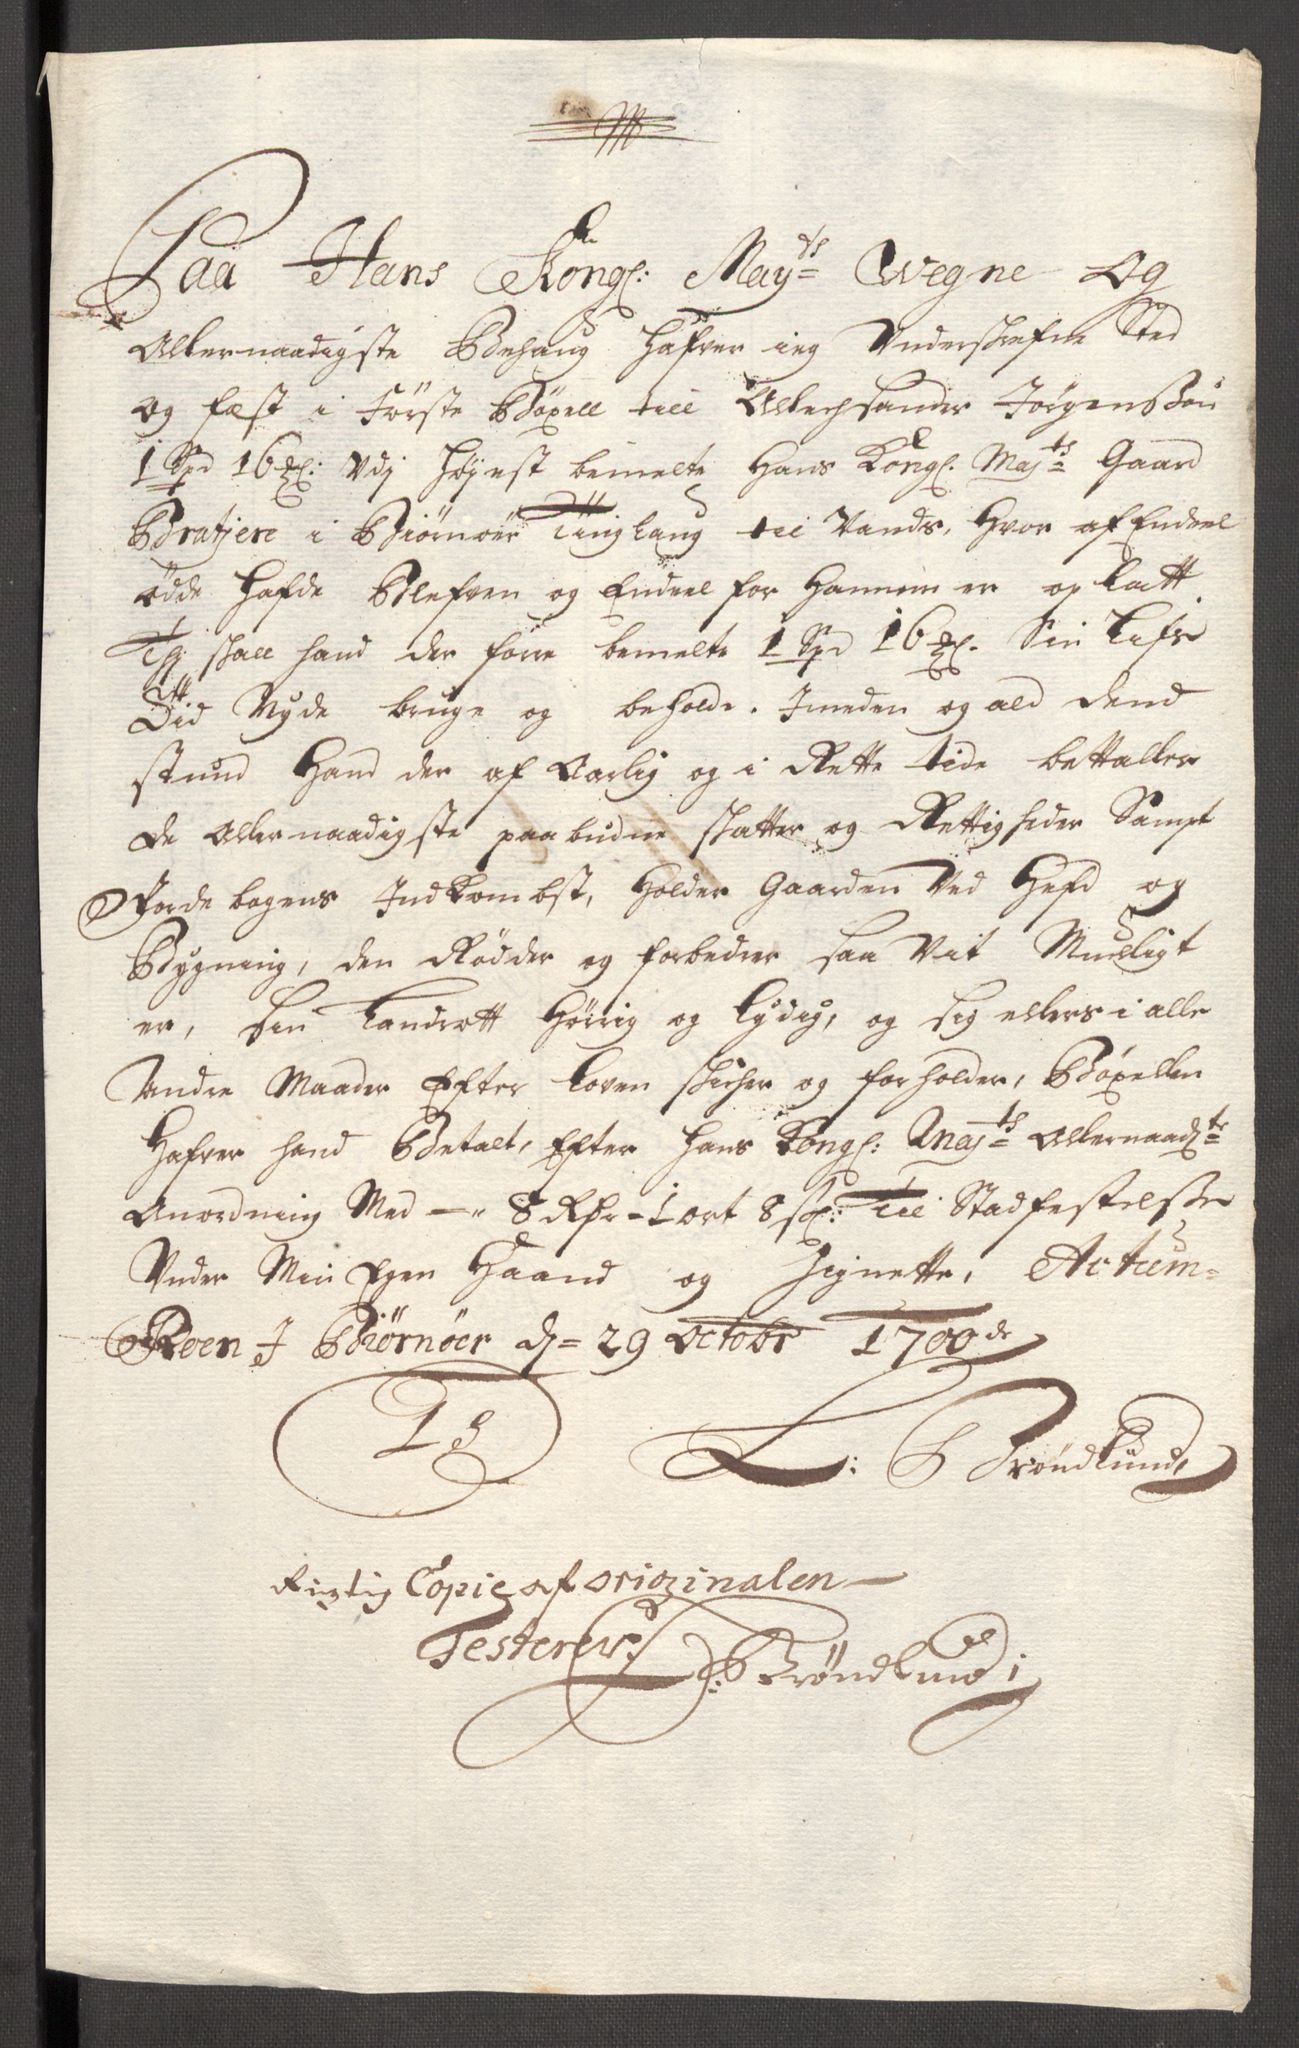 Paa Hans Kongl: Mayts Wegne Og
Allernaadigste Behaug Hafver ieg Underschrefne Sted
og fæst i Förste Böxell till Allechsander Jörgensßön
1 Spd 16 Mk: Udj höjest bemelte Hans Kongl. Majts Gaard
Bratjere i Biørnøer Tinglaug til Vands, Hvor af Endeel
øde Hafde Blefven og Endeel for Hannem er op latt
Og schall hand der forre bemelte 1 Spd 16 Mk. Sin Lifs
Tid Nyde bruge og beholde. Imeden og ald dend
stund Hand der af Aarlig og i Rette tide bettaller
de Allernaadigste paabudne schatter og Rettigheder Sampt
Jordebogens Indkombst, Holder Gaarden Ved Hefd og
Bygning, den Rødder og forbedrer saa Vit Mueligt
er, sin Landrott Hørig og Lydig, og sig ellers i alle
Andre Maader Efter Loven schicher og forholder, Böxellen
Hafver hand Betalt, Efter Hans Kongl: Majts Allernaadtr
Anordning Med — 8 Rdr - 1 ort 8 sl: Til Stadfestelße
Under Min Egen Haand og Signette, Actum
Roen J Biørnøer d= 29 Octobr 1700de
L S L: B Tröndlund
Rigtig Copie af originalen
Testerer L: B Tröndlund